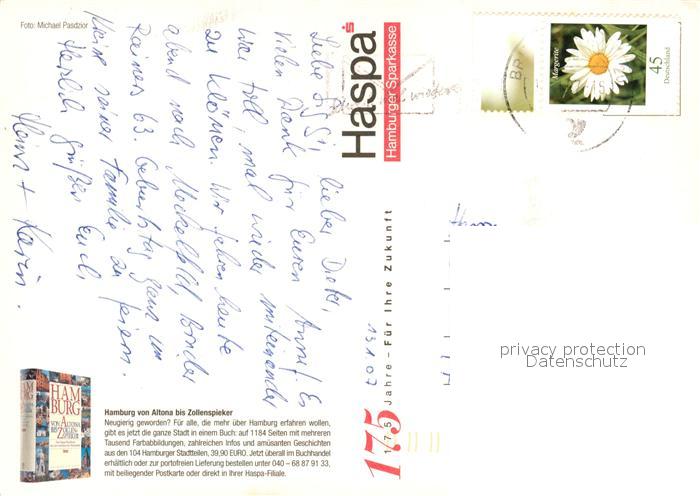 Foto: Michael Pasdzior
lieber Dieter,
Vielen Dank für Euren Anruf. Es
war toll, mal wieder miteinander
zu klönen. Wir fahren heute
abend nach
63. Geburtstag ganz im
seiner Familie zu feiern.
Herzlich grüßen Euch
Heinz + Karin.
13.1.07
Haspa
Hamburger Sparkasse
175
175 Jahre – Für Ihre Zukunft
Margerite
45
Deutschland
Hrn.
privacy protection
HAM
BURG
VON ALTONA
BIS ZOLLEN-
SPIEKER
Hamburg von Altona bis Zollenspieker
Neugierig geworden? Für alle, die mehr über Hamburg erfahren wollen,
gibt es jetzt die ganze Stadt in einem Buch: auf 1184 Seiten mit mehreren
Tausend Farbabbildungen, zahlreichen Infos und amüsanten Geschichten
aus den 104 Hamburger Stadtteilen, 39,90 EURO. Jetzt überall im Buchhandel
erhältlich oder zur portofreien Lieferung bestellen unter 040 – 68 87 91 33,
mit beiliegender Postkarte oder direkt in Ihrer Haspa-Filiale.